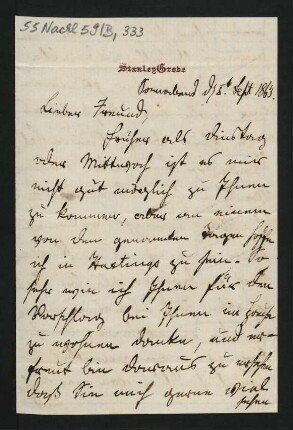 SS Nachl 59/B, 333
Stanley Grove
Sonnabend d 5t Sept 1863.
Lieber Freund,
Früher als Dinstag
oder Mittwoch ist es mir
nicht gut möglich zu Ihnen
zu kommen, aber an einem
von den genannten Tagen hoffe
ich in Hastings zu sein. So
sehr wie ich Ihnen für den
Vorschlag bei Ihnen im Hause
zu wohnen danke, und er-
freut bin daraus zu ersehen
daß Sie mich gerne viel
sehen